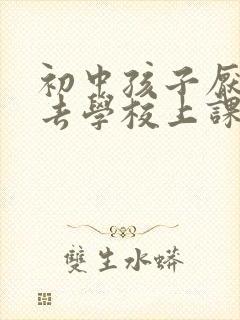 初中孩子厭
去學校上課
雙生水蟒